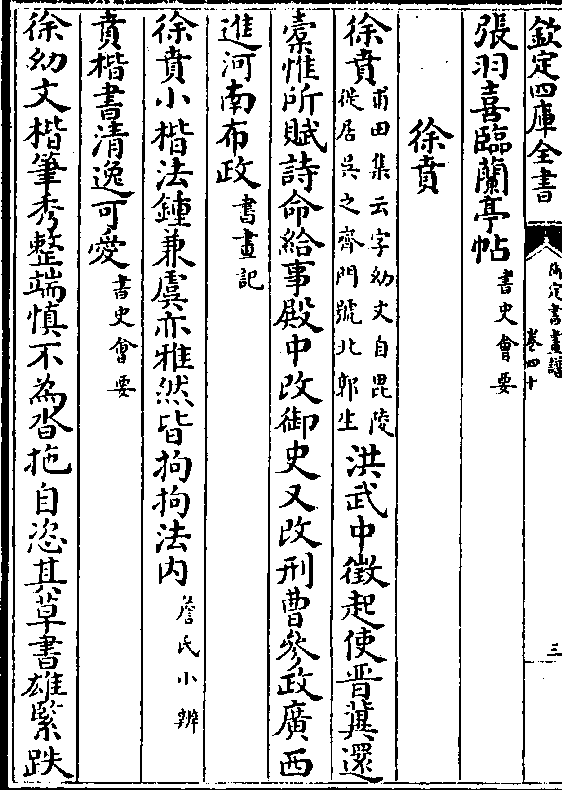 欽定四庫全書
御定書畫譜
卷四十
三
張羽喜臨蘭亭帖書史會要
徐賁
徐賁甫田集云字幼文自毘陵
徙居吳之齊門號北郭生
洪武中徵起使晉冀還
橐惟所賦詩命給事殿中改御史又改刑曹參政廣西
進河南布政書畫記
徐賁小楷法鍾兼虞亦雅然皆拘拘法内詹氏小辨
賁楷書清逸可愛書史會要
徐幼文楷筆秀整端慎不為沓拖自恣其草書雄緊跌